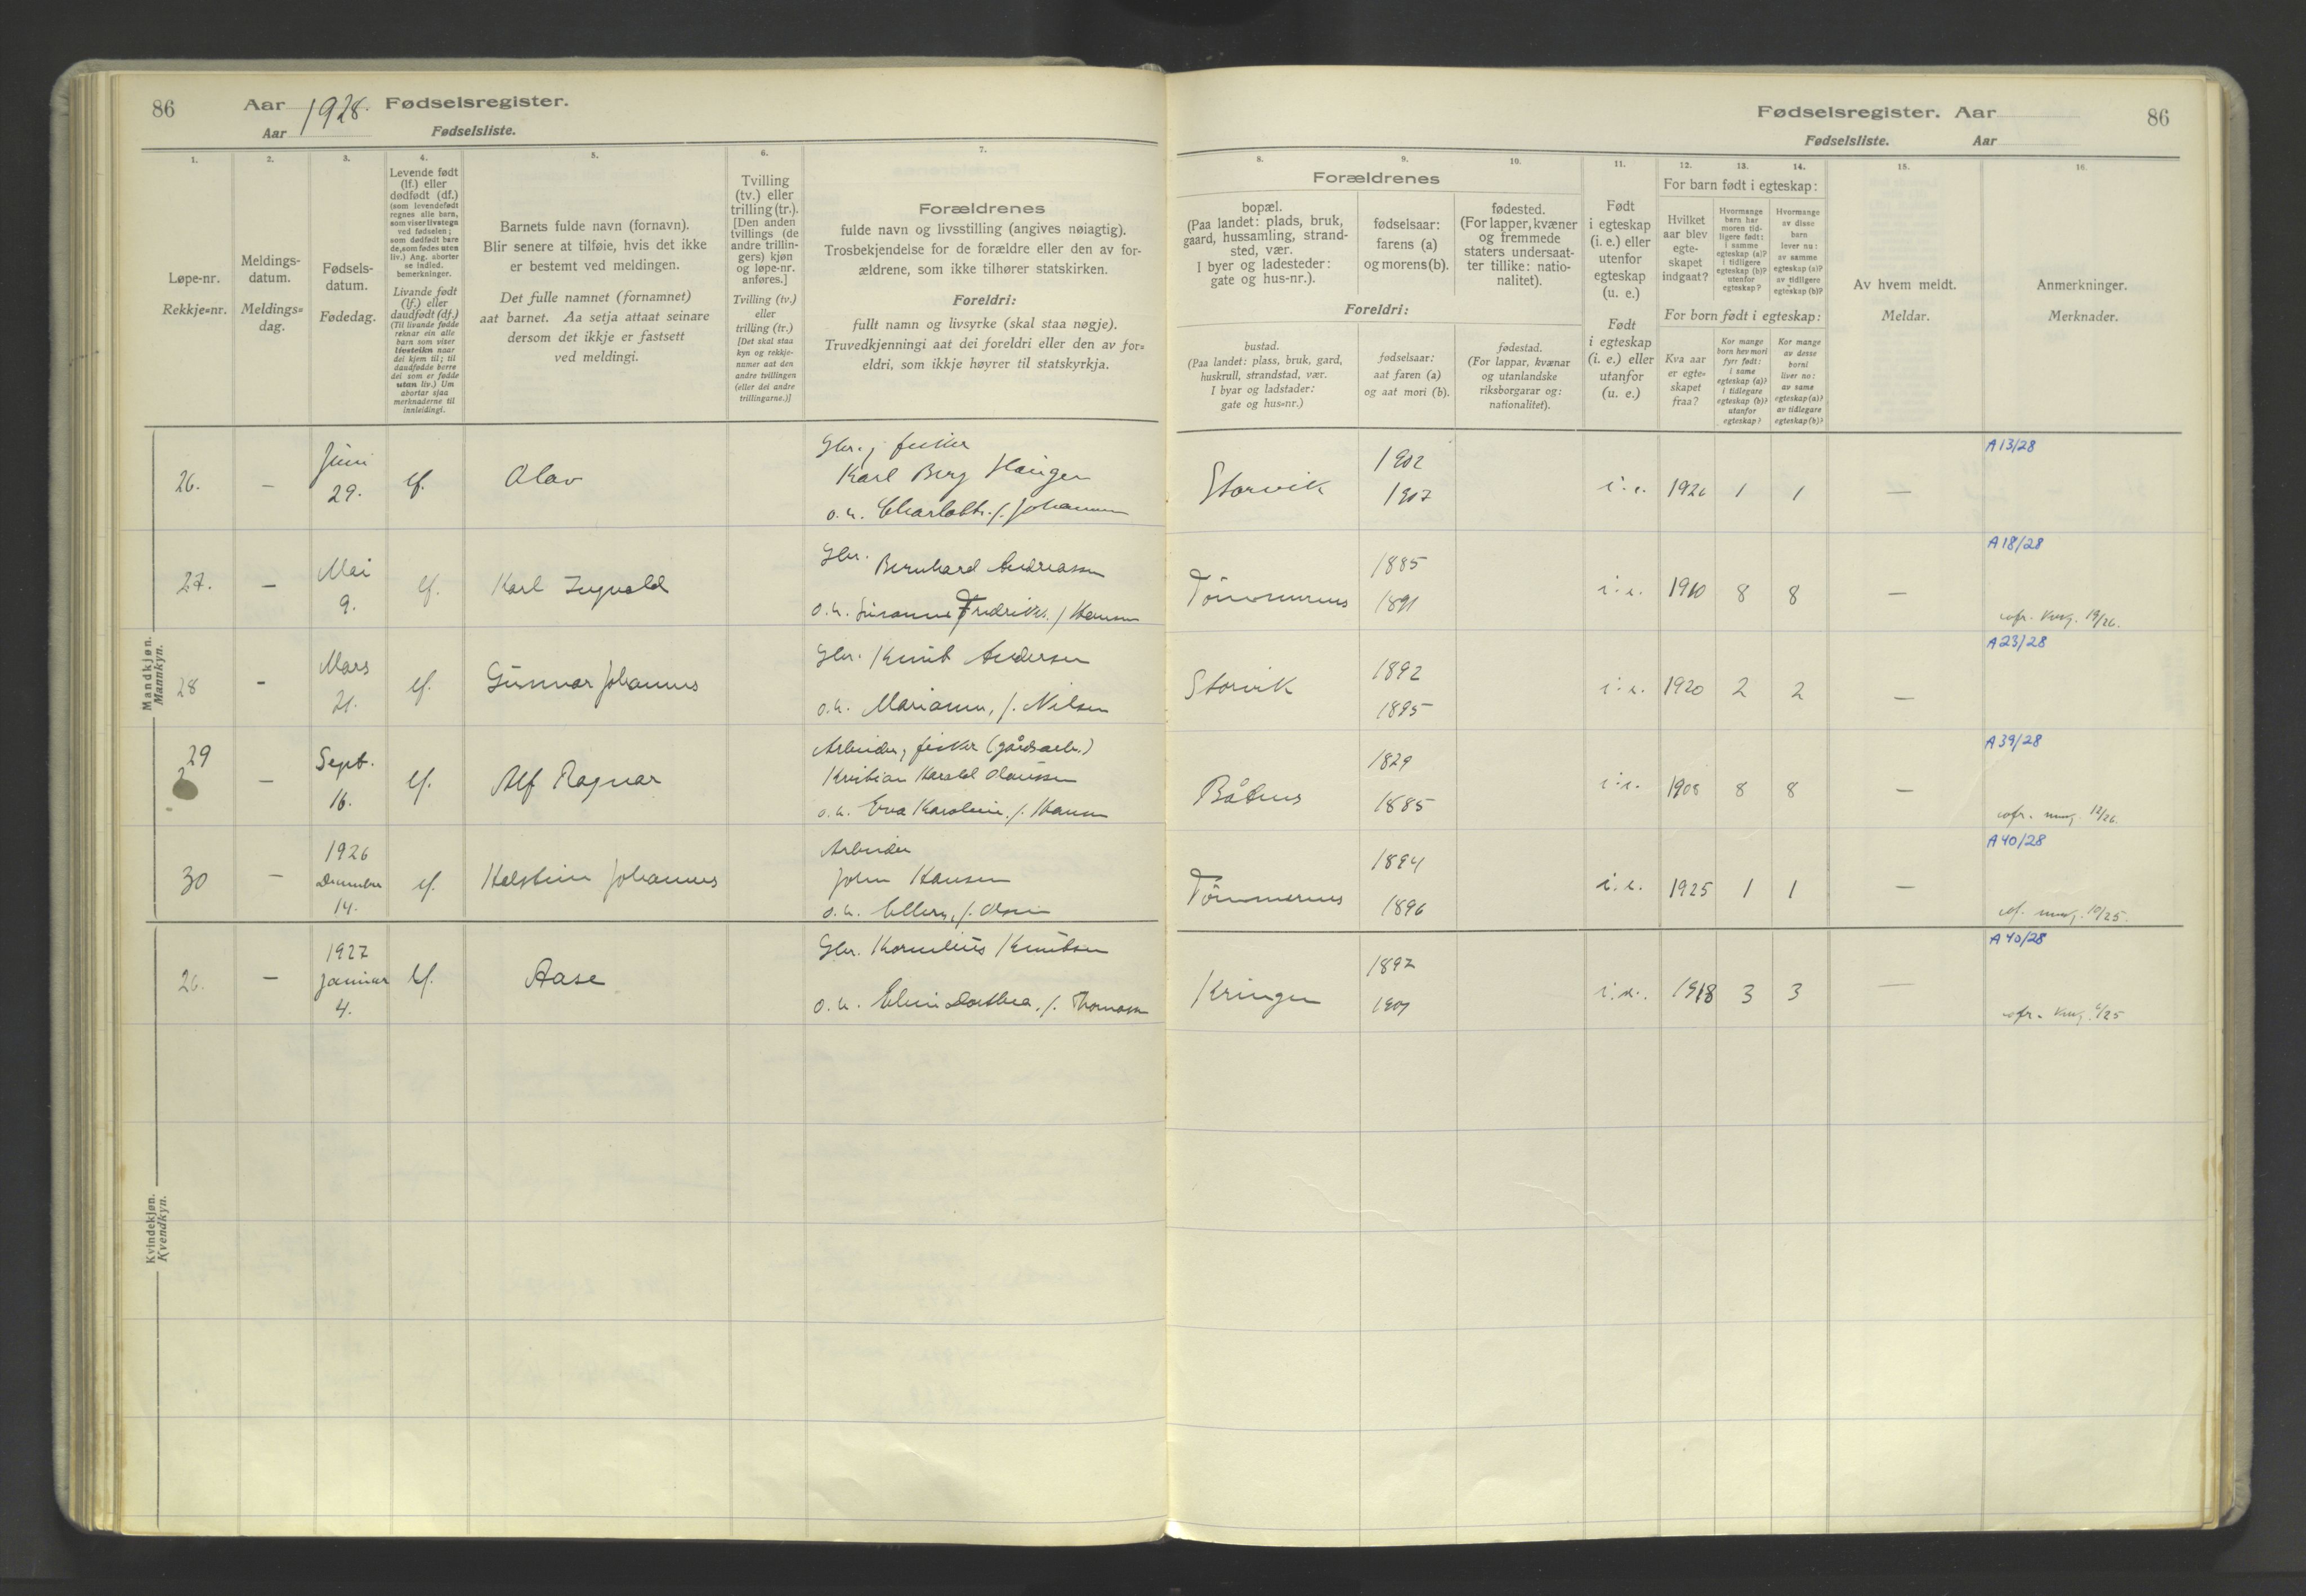 86
Aar 1928. Fødselsregister.
Aar Fødselsliste.
1.
Løpe-nr.
Rekkje=nr.
2.
Meldings-
datum.
Meldings=
dag.
3.
Fødsels-
datum.
Fødedag.
4.
Levende født
(lf.) eller
dødfødt (df.)
(som levendefødt
regnes alle barn,
som viser livstegn
ved fødselen;
som dødfødt bare
de, som fødes uten
liv.) Ang. aborter
se indled.
bemerkninger.
Livande født
(lf.) eller
daudfødt (df.)
(Til livande fødde
reknar ein alle
barn som viser
livsteikn naar
dei kjem til; til
daudfødde berre
dei som er fødde
utan liv.) Um
abortar sjaa
merknaderne til
innleidingi.
5.
Barnets fulde navn (fornavn).
Blir senere at tilføie, hvis det ikke
er bestemt ved meldingen.
Det fulle namnet (fornamnet)
aat barnet. Aa setja attaat seinare
dersom det ikkje er fastsett
ved meldingi.
6.
Tvilling
(tv.) eller
trilling (tr.).
[Den anden
tvillings (de
andre trillin-
gers) kjøn
og løpe-nr.
anføres.]
Tvilling (tv.)
eller
trilling (tr.)
[Det skal staa
kyn og rekkje-
numer aat den
andre tvillingen
(eller dei andre
trillingarne.)]
7.
Forældrenes
fulde navn og livsstilling (angives nøiagtig).
Trosbekjendelse for de forældre eller den av for-
ældrene, som ikke tilhører statskirken.
Foreldri:
fullt namn og livsyrke (skal staa nøgje).
Truvedkjenningi aat dei foreldri eller den av for=
eldri, som ikkje høyrer til statskyrkja.
Mandkjøn.
Mannkyn.
26.
–
Juni
29.
lf.
Olav
Gbr., fisker
Karl Berg Haugen
o. h. Charlotte f. Johansen
27.
–
Mai
9.
lf.
Karl Ingvald
Gbr.
Bernhard Andreassen
o. h. Susanna Fredrikke f Hansen
28
-
Mars
21.
lf.
Gunnar Johannes
Gbr. Knut Andersen
o. h. Marianne, f. Nilsen
29
–
Sept.
16.
lf.
Alf Ragnar
Arbeider, fisker (gårdsarb.)
Kristian Harald Olaussen
o. h. Eva Karoline, f. Hansen
30
–
1926
December
14.
lf.
Halstein Johannes
Arbeider
John Hansen
o. h. Ellen, f. Olsen
Kvindekjøn.
Kvendkyn.
26.
–
1927
Januar
4.
lf.
Aase
Gbr. Kornelius Knutsen
o. h. Elen Dorthea, f. Thomassen
Fødselsregister. Aar 86
Fødselsliste. Aar
8.
Forældrenes
bopæl.
(Paa landet: plads, bruk,
gaard, hussamling, strand-
sted, vær.
I byer og ladesteder:
gate og hus-nr.).
Foreldri:
bustad.
(Paa landet: plass, bruk, gard,
huskrull, strandstad, vær.
I byar og ladstader:
gate og hus=nr.)
9.
fødselsaar:
farens (a)
og morens (b).
fødselsaar:
aat faren (a)
og aat mori (b).
10.
fødested.
(For lapper, kvæner
og fremmede
staters undersaat-
ter tillike: natio-
nalitet).
fødestad.
(For lappar, kvænar
og utanlandske
riksborgarar og:
nationalitet).
11.
Født
i egteskap
(i. e.) eller
utenfor
egteskap
(u. e.)
Født
i egteskap
(i. e.) eller
utanfor
(u. e.)
12. 13. 14.
For barn født i egteskap:
Hvilket
aar blev
egte-
skapet
indgaat?
Hvormange
barn har
moren tid-
ligere født:
i samme
egteskap (a)?
i tidligere
egteskap (b)?
utenfor
egteskap?
Hvormange
av disse
barn
lever nu:
av samme
egteskap (a)?
av tidligere
egteskap (b)?
For born født i egteskap:
Kva aar
er egte=
skapet
fraa?
Kor mange
born hev mori
fyrr født:
i same
egteskap (a)?
i tidlegare
egteskap (b)?
utanfor
egteskap?
Kor mange
av desse
borni
liver no:
av same
egteskap (a)?
av tidlegare
egteskap (b)?
15.
Av hvem meldt.
Meldar.
16.
Anmerkninger.
Merknader.
Storvik
1902
1907
i. e.
1926
1
1
—
A 13/28
Tömmernes
1885
1891
i. e.
1910
8
8
—
A 18/28
19/26.
Storvik
1892
1895
i. e.
1920
2
2
—
A 23/28
Båtnes
1885
i. e.
1908
8
8
—
A 39/28
12/26.
Tömmernes
1894
1896
i. e.
1925
1
1
—
A 40/28
10/25.
Kringen
1897
i. e.
1918
3
3
—
A 40/28